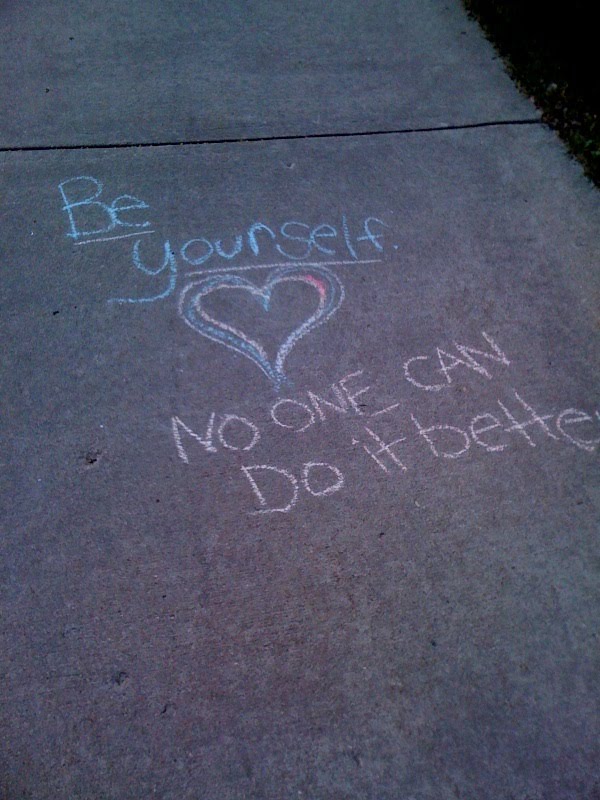 Be
yourself.
NO ONE CAN
Do it bette